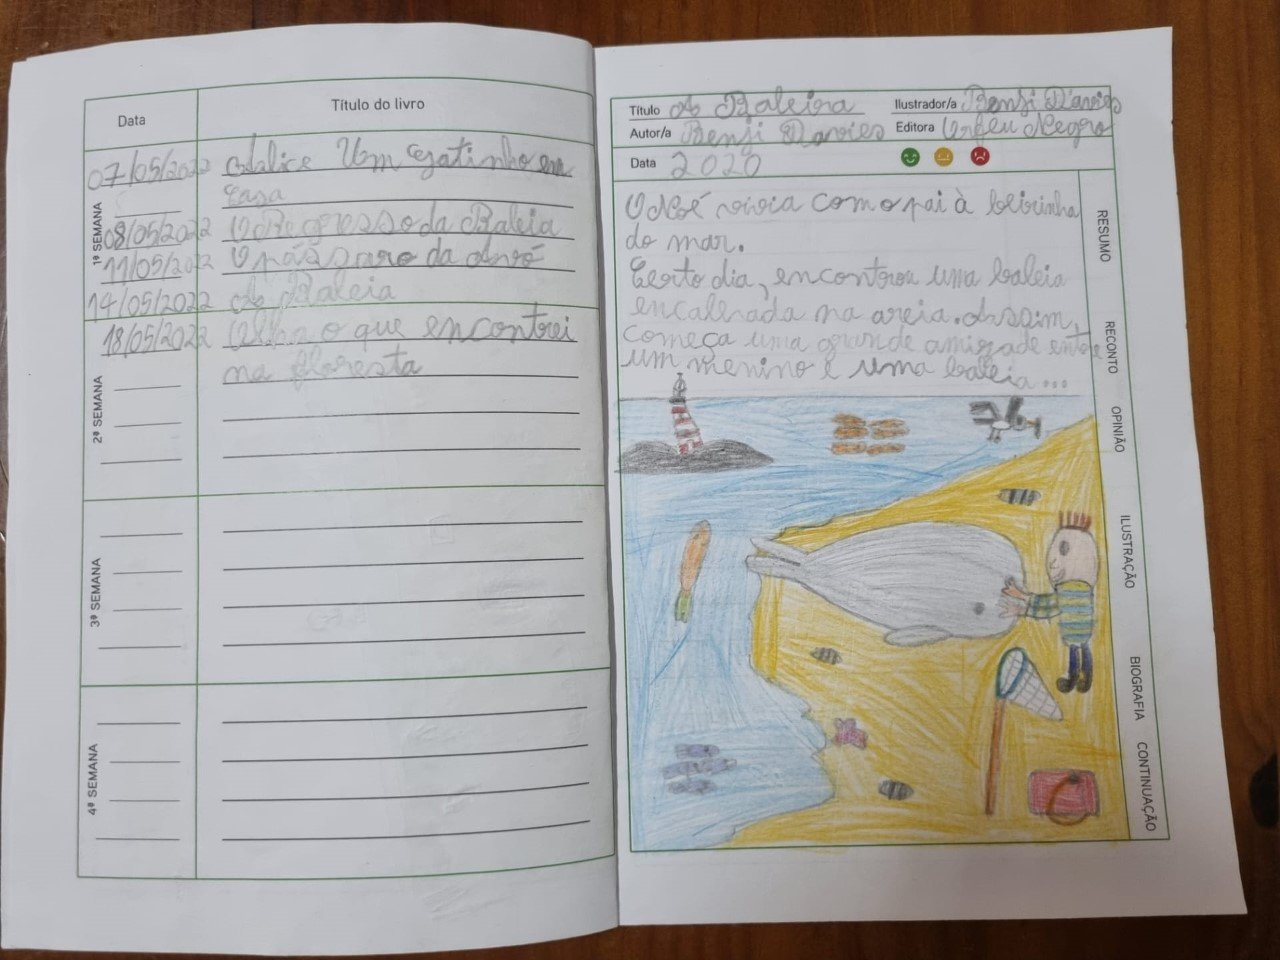 Data
Título do livro
1ª SEMANA
07/05/2022 Adalice Um gatinho em
casa
08/05/2022 O Regresso da Baleia
11/05/2022 O pássaro da Avó
14/05/2022 A Baleia
2ª SEMANA
18/05/2022 Olha o que encontrei
na floresta
3ª SEMANA
4ª SEMANA
Título A Baleira Ilustrador/a Benji Davies
Autor/a Benji Davies Editora Orfeu Negro
Data 2020
O Noé vivia com o pai à beirinha
do mar.
Certo dia, encontrou uma baleia
encalhada na areia. Assim,
começa uma grande amizade entre
um menino e uma baleia...
RESUMO
RECONTO
OPINIÃO
ILUSTRAÇÃO
BIOGRAFIA
CONTINUAÇÃO